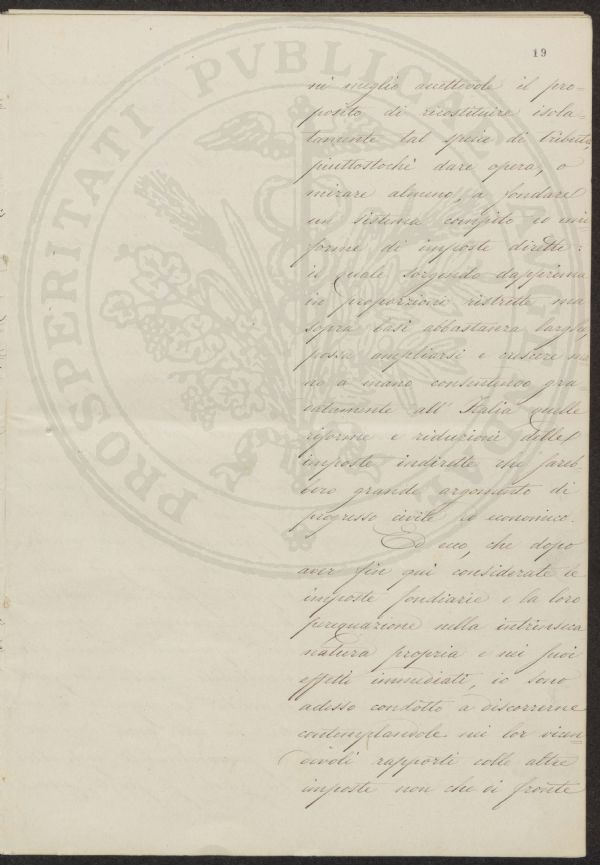 19
ni meglio accettevole il pro=
posito di ricostituire isola=
tamente tal specie di tributi,
piuttostochè dare opera, o
mirare almeno, a fondare
un sistema compito ed uni=
forme di imposte dirette:
il quale sorgendo dapprima
in proporzioni ristrette ma
sopra basi abbastanza larghe,
possa ampliarsi e crescere ma=
no a mano consentendo gra=
datamente all'Italia quelle
riforme e riduzioni delle
imposte indirette che sareb=
bero grande argomento di
progresso civile ed economico.
Ed ecco, che dopo
aver fin qui considerate le
imposte fondiarie e la loro
perequazione nella intrinseca
natura propria e nei suoi
effetti immediati, io sono
adesso condotto a discorrerne
contemplandole nei lor vicen=
devoli rapporti colle altre
imposte non che di fronte
PROSPERITATI PVBLICAE AVGENDAE